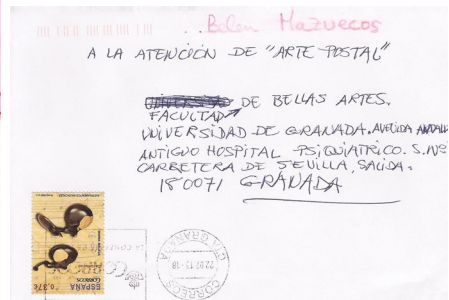 Belen Mazuecos
A LA ATENCIÓN DE "ARTE POSTAL"
DE BELLAS ARTES.
FACULTAD
UNIVERSIDAD DE GRANADA. AVENIDA ANDALU
ANTIGUO HOSPITAL PSIQUIATRICO. S. Nº
CARRETERA DE SEVILLA, SALIDA.
180071 GRANADA
ESPAÑA
CORREOS
0,37€
GRANADA
CORREOS